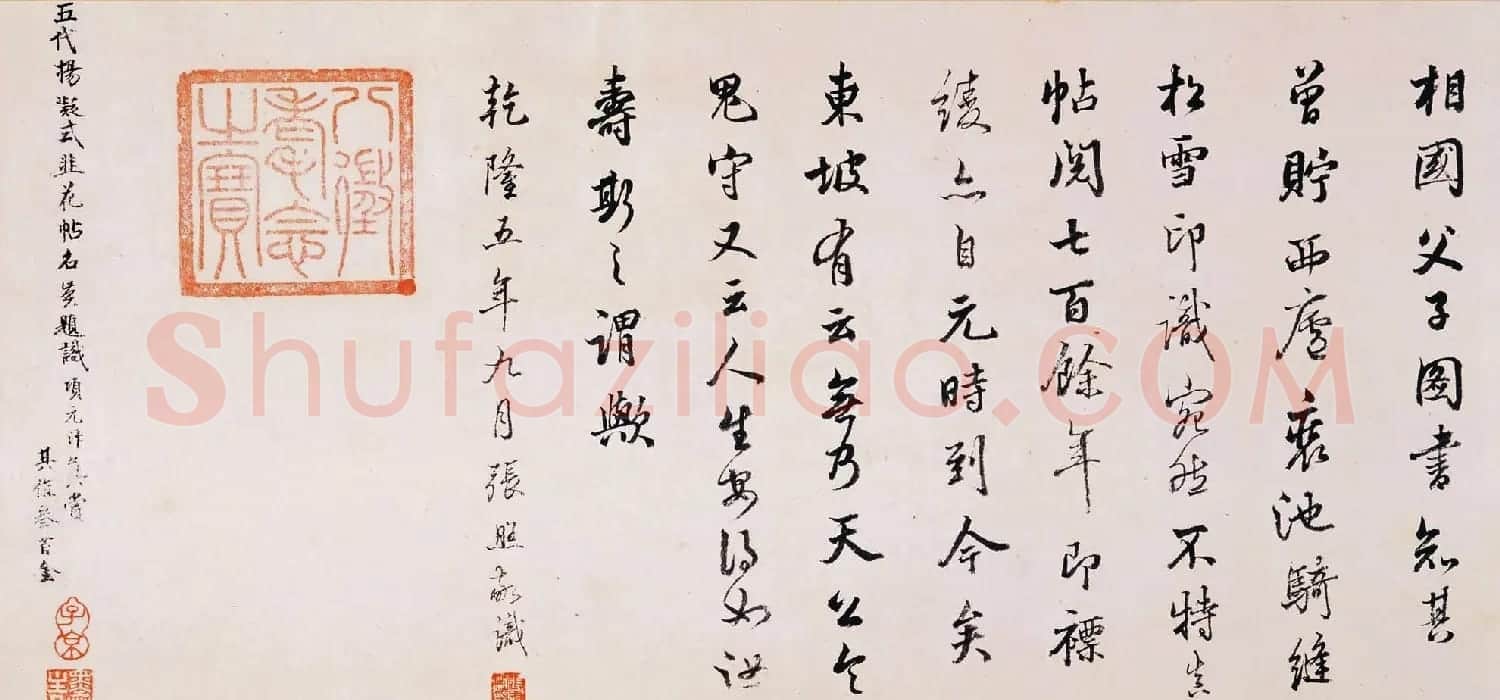 相國父子圖書知其
曾貯西廬裏池騎縫
松雪印識宛然不特真
帖閱七百餘年即褾
綾亦自元時到今矣
東坡有云無乃天公令
鬼守又云人生安得如汝
壽斯之謂歟
乾隆五年九月張照敬識
八徵
耄念
之寶
五代楊凝式韭花帖名賢題識項元汴真賞
其值叁百金
子京
Shufaziliao.COM